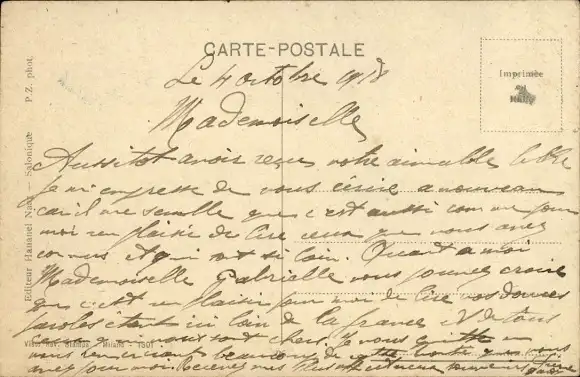 CARTE-POSTALE
Imprimée
Editeur Hananel Naar — Salonique P.Z. phot.
Le 4 octobre 1918
Mademoiselle
Aussitot avoir reçu votre aimable lettre
je m'empresse de vous écrire a nouveau
car il me semble que c'est aussi comme pour
moi un plaisir de lire ceux que vous avez
connus et qui sont si loin. Quant a moi
Mademoiselle Gabrielle vous pouvez croire
que c'est un plaisir pour moi de lire vos douces
paroles étant si loin de la france et de tous
ceux qui nous sont chers je vous quitte en
vous remerciant beaucoup de cette bonté que vous
avez pour moi Recevez mes plus souvenirs
Milano - 1501